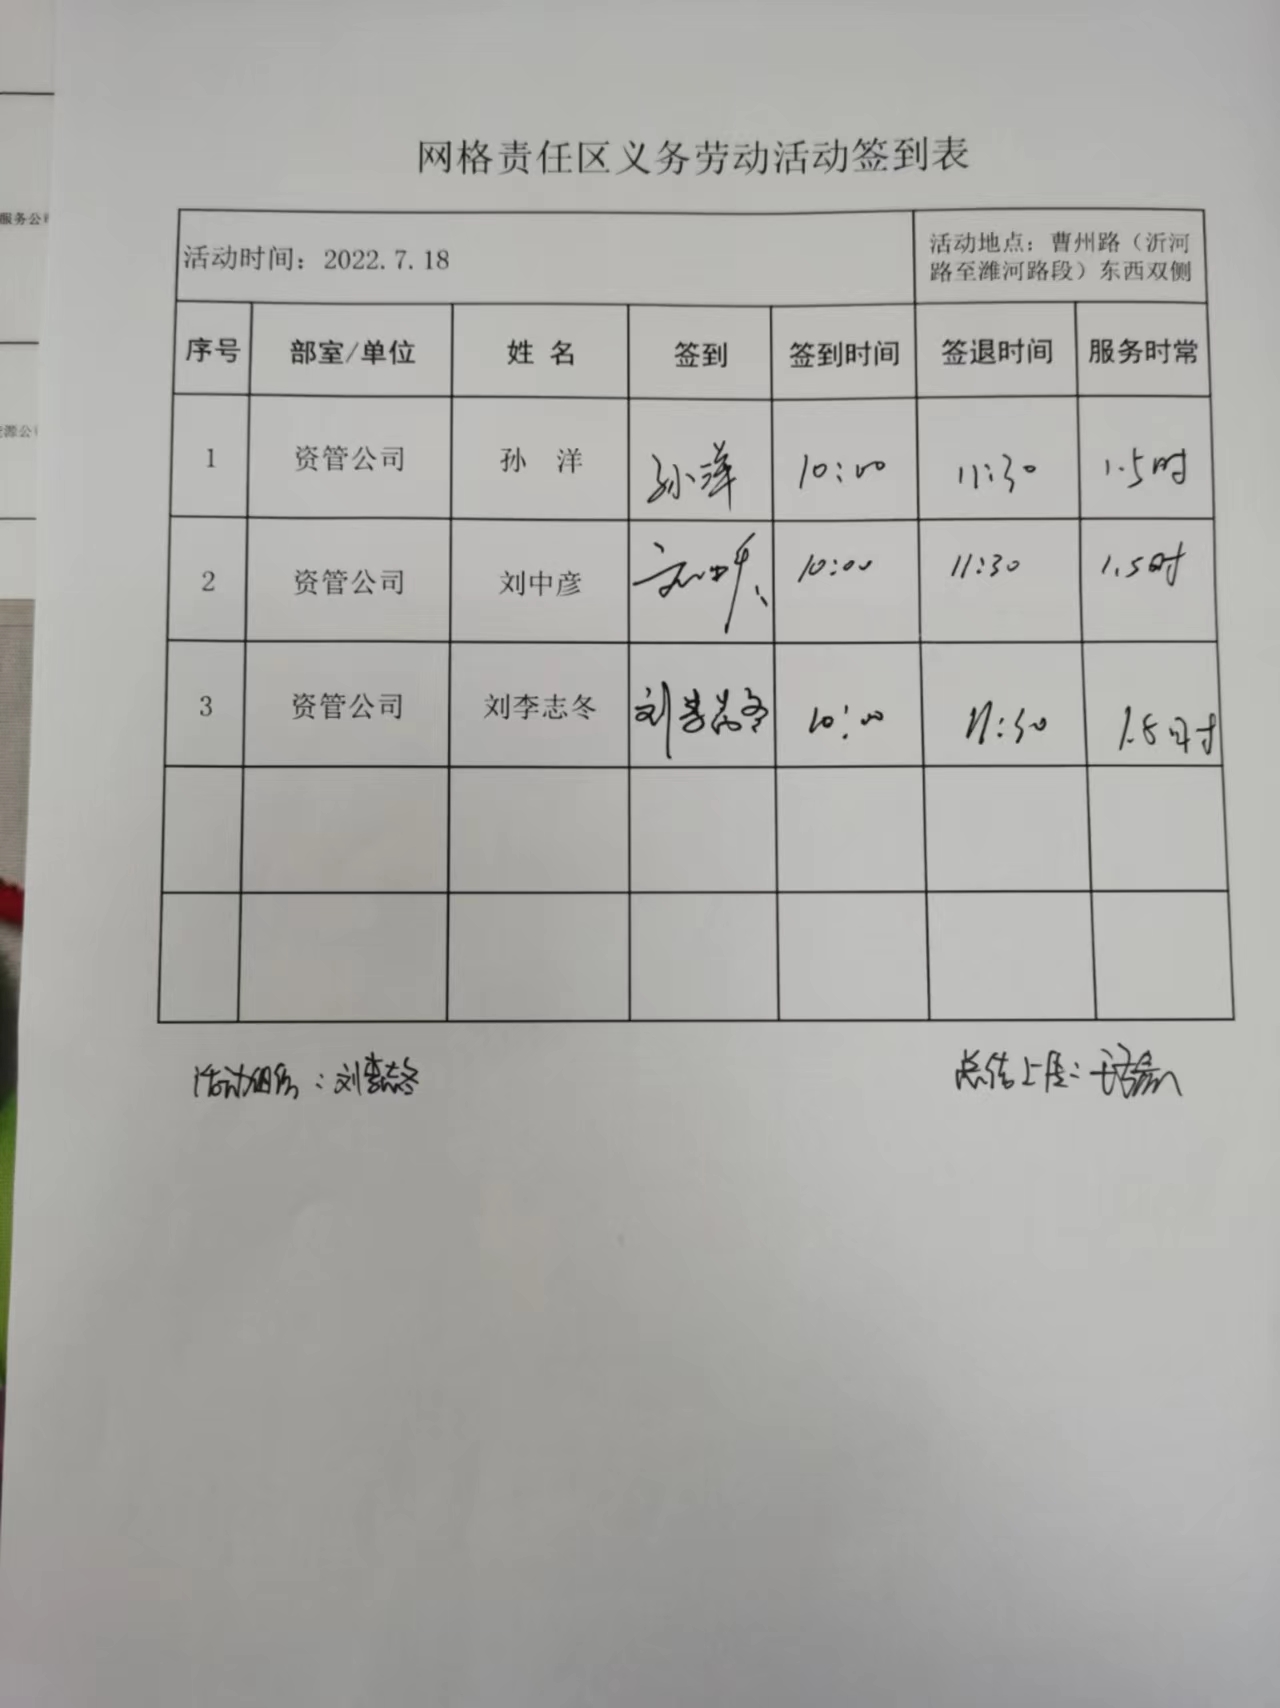 服务公司
网格责任区义务劳动活动签到表
活动时间：2022.7.18
活动地点：曹州路（沂河
路至潍河路段）东西双侧
序号 部室/单位 姓 名 签到 签到时间 签退时间 服务时常
1 资管公司 孙 洋 孙洋 10:00 11:30 1.5时
2 资管公司 刘中彦 刘中彦 10:00 11:30 1.5时
3 资管公司 刘李志冬 刘李志冬 10:00 11:30 1.5时
源公司
活动组织：刘李志冬
总结上传：